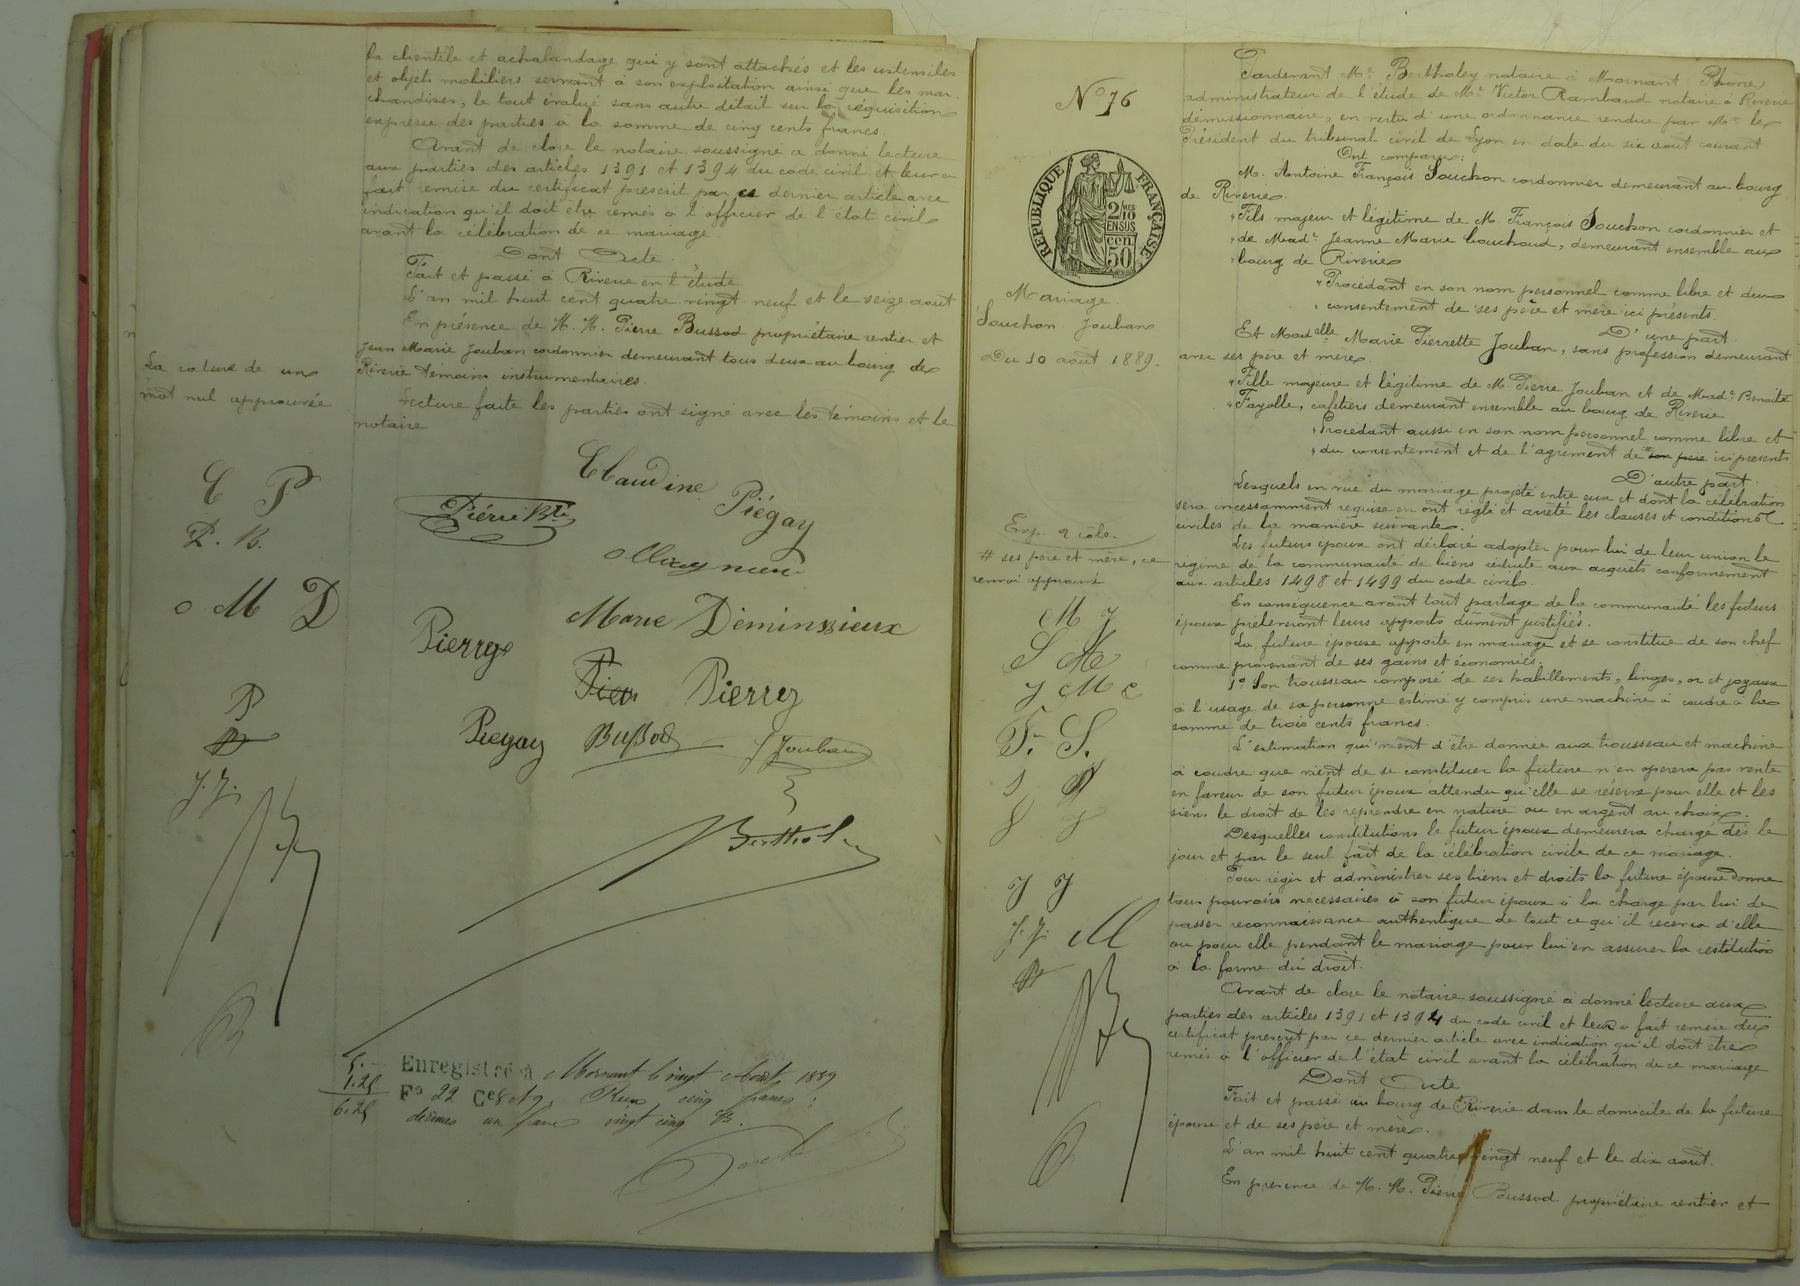 la clientèle et achalandage qui y sont attachés et les ustensiles
et objets mobiliers servant à son exploitation ainsi que les mar-
chandises, le tout évalué sans autre détail sur la réquisition
expresse des parties à la somme de cinq cents francs.
Avant de clore le notaire soussigné a donné lecture
aux parties des articles 1391 et 1394 du code civil et leur a
fait remise du certificat prescrit par ce dernier article avec
indication qu'il doit être remis à l'officier de l'état civil
avant la célébration de ce mariage
Dont Acte.
Fait et passé à Riverie en l'étude
L'an mil huit cent quatre vingt neuf et le seize août
En présence de M. M. Pierre Bussod propriétaire rentier et
Jean Marie Jouban cordonnier demeurant tous deux au bourg de
Riverie témoins instrumentaires.
Lecture faite les parties ont signé avec les témoins et le
notaire
La rature de un
mot nul approuvée
C P
P. B.
M D
P
J. J.
Claudine Piégay
Pierre Bte
Marie Déminssieux
Pierrye
Pierrey
Piegay Bußod J Jouban
Berthol
5.-
1.25
6.25
Enregistré à Mornant le vingt Août 1889
Fo 22 Ce 8 No 7. Reçu cinq francs;
décimes un franc vingt cinq
No 76
REPUBLIQUE FRANÇAISE
2/10 MES
EN SUS
50 cen.
Mariage
Souchon Jouban
Du 10 août 1889.
Exp. 2 rôle.
# ses père et mère, ce
renvoi approuvé
M J
J M C
F. S.
J J
J. J. M
Pardevant Me Bertholey notaire à Mornant Rhône,
administrateur de l'étude de Me Victor Rambaud notaire à Riverie
démissionnaire, en vertu d'une ordonnance rendue par Mr le
Président du tribunal civil de Lyon en date du six août courant
Ont comparu:
M. Antoine François Souchon cordonnier demeurant au bourg
de Riverie
"Fils majeur et légitime de M. François Souchon cordonnier et
"de Made Jeanne Marie Couchoud, demeurant ensemble au
"bourg de Riverie
"Procédant en son nom personnel comme libre et du
" consentement de ses père et mère ici présents.
D'une part.
Et Madelle Marie Pierrette Jouban, sans profession demeurant
avec ses père et mère.
"Fille majeure et légitime de M. Pierre Jouban et de Made Benoite
"Fayolle, cafetiers demeurant ensemble au bourg de Riverie
"Procédant aussi en son nom personnel comme libre et
"du consentement et de l'agrément de # son père ici présents
D'autre part.
Lesquels en vue du mariage projeté entre eux et dont la célébration
sera incessamment requise en ont réglé et arrêté les clauses et conditions
civiles de la manière suivante.
Les futurs époux ont déclaré adopter pour loi de leur union le
régime de la communauté de biens réduite aux acquêts conformément
aux articles 1498 et 1499 du code civil.
En conséquence avant tout partage de la communauté les futurs
époux prélèveront leurs apports dûment justifiés.
La future épouse apporte en mariage et se constitue de son chef
comme provenant de ses gains et économies.
1o Son trousseau composé de ses habillements, linges, or et joyaux
à l'usage de sa personne estimé y compris une machine à coudre à la
somme de trois cents francs.
L'estimation qui vient d'être donnée aux trousseau et machine
à coudre que vient de se constituer la future n'en operera pas vente
en faveur de son futur époux attendu qu'elle se réserve pour elle et les
siens le droit de les reprendre en nature ou en argent au choix.
Desquelles constitutions le futur époux demeurera chargé dès le
jour et par le seul fait de la célébration civile de ce mariage.
Pour régir et administrer ses biens et droits la future épouse donne
tous pouvoirs nécessaires à son futur époux à la charge par lui de
passer reconnaissance authentique de tout ce qu'il recevra d'elle
ou pour elle pendant le mariage pour lui en assurer la restitution
à la forme du droit.
Avant de clore le notaire soussigné à donné lecture aux
parties des articles 1391 et 1394 du code civil et leur a fait remise du
certificat prescrit par ce dernier article avec indication qu'il doit être
remis à l'officier de l'état civil avant la célébration de ce mariage
Dont Acte
Fait et passé au bourg de Riverie dans le domicile de la future
épouse et de ses père et mère.
L'an mil huit cent quatre vingt neuf et le dix août.
En présence de M. M. Pierre Bussod propriétaire rentier et